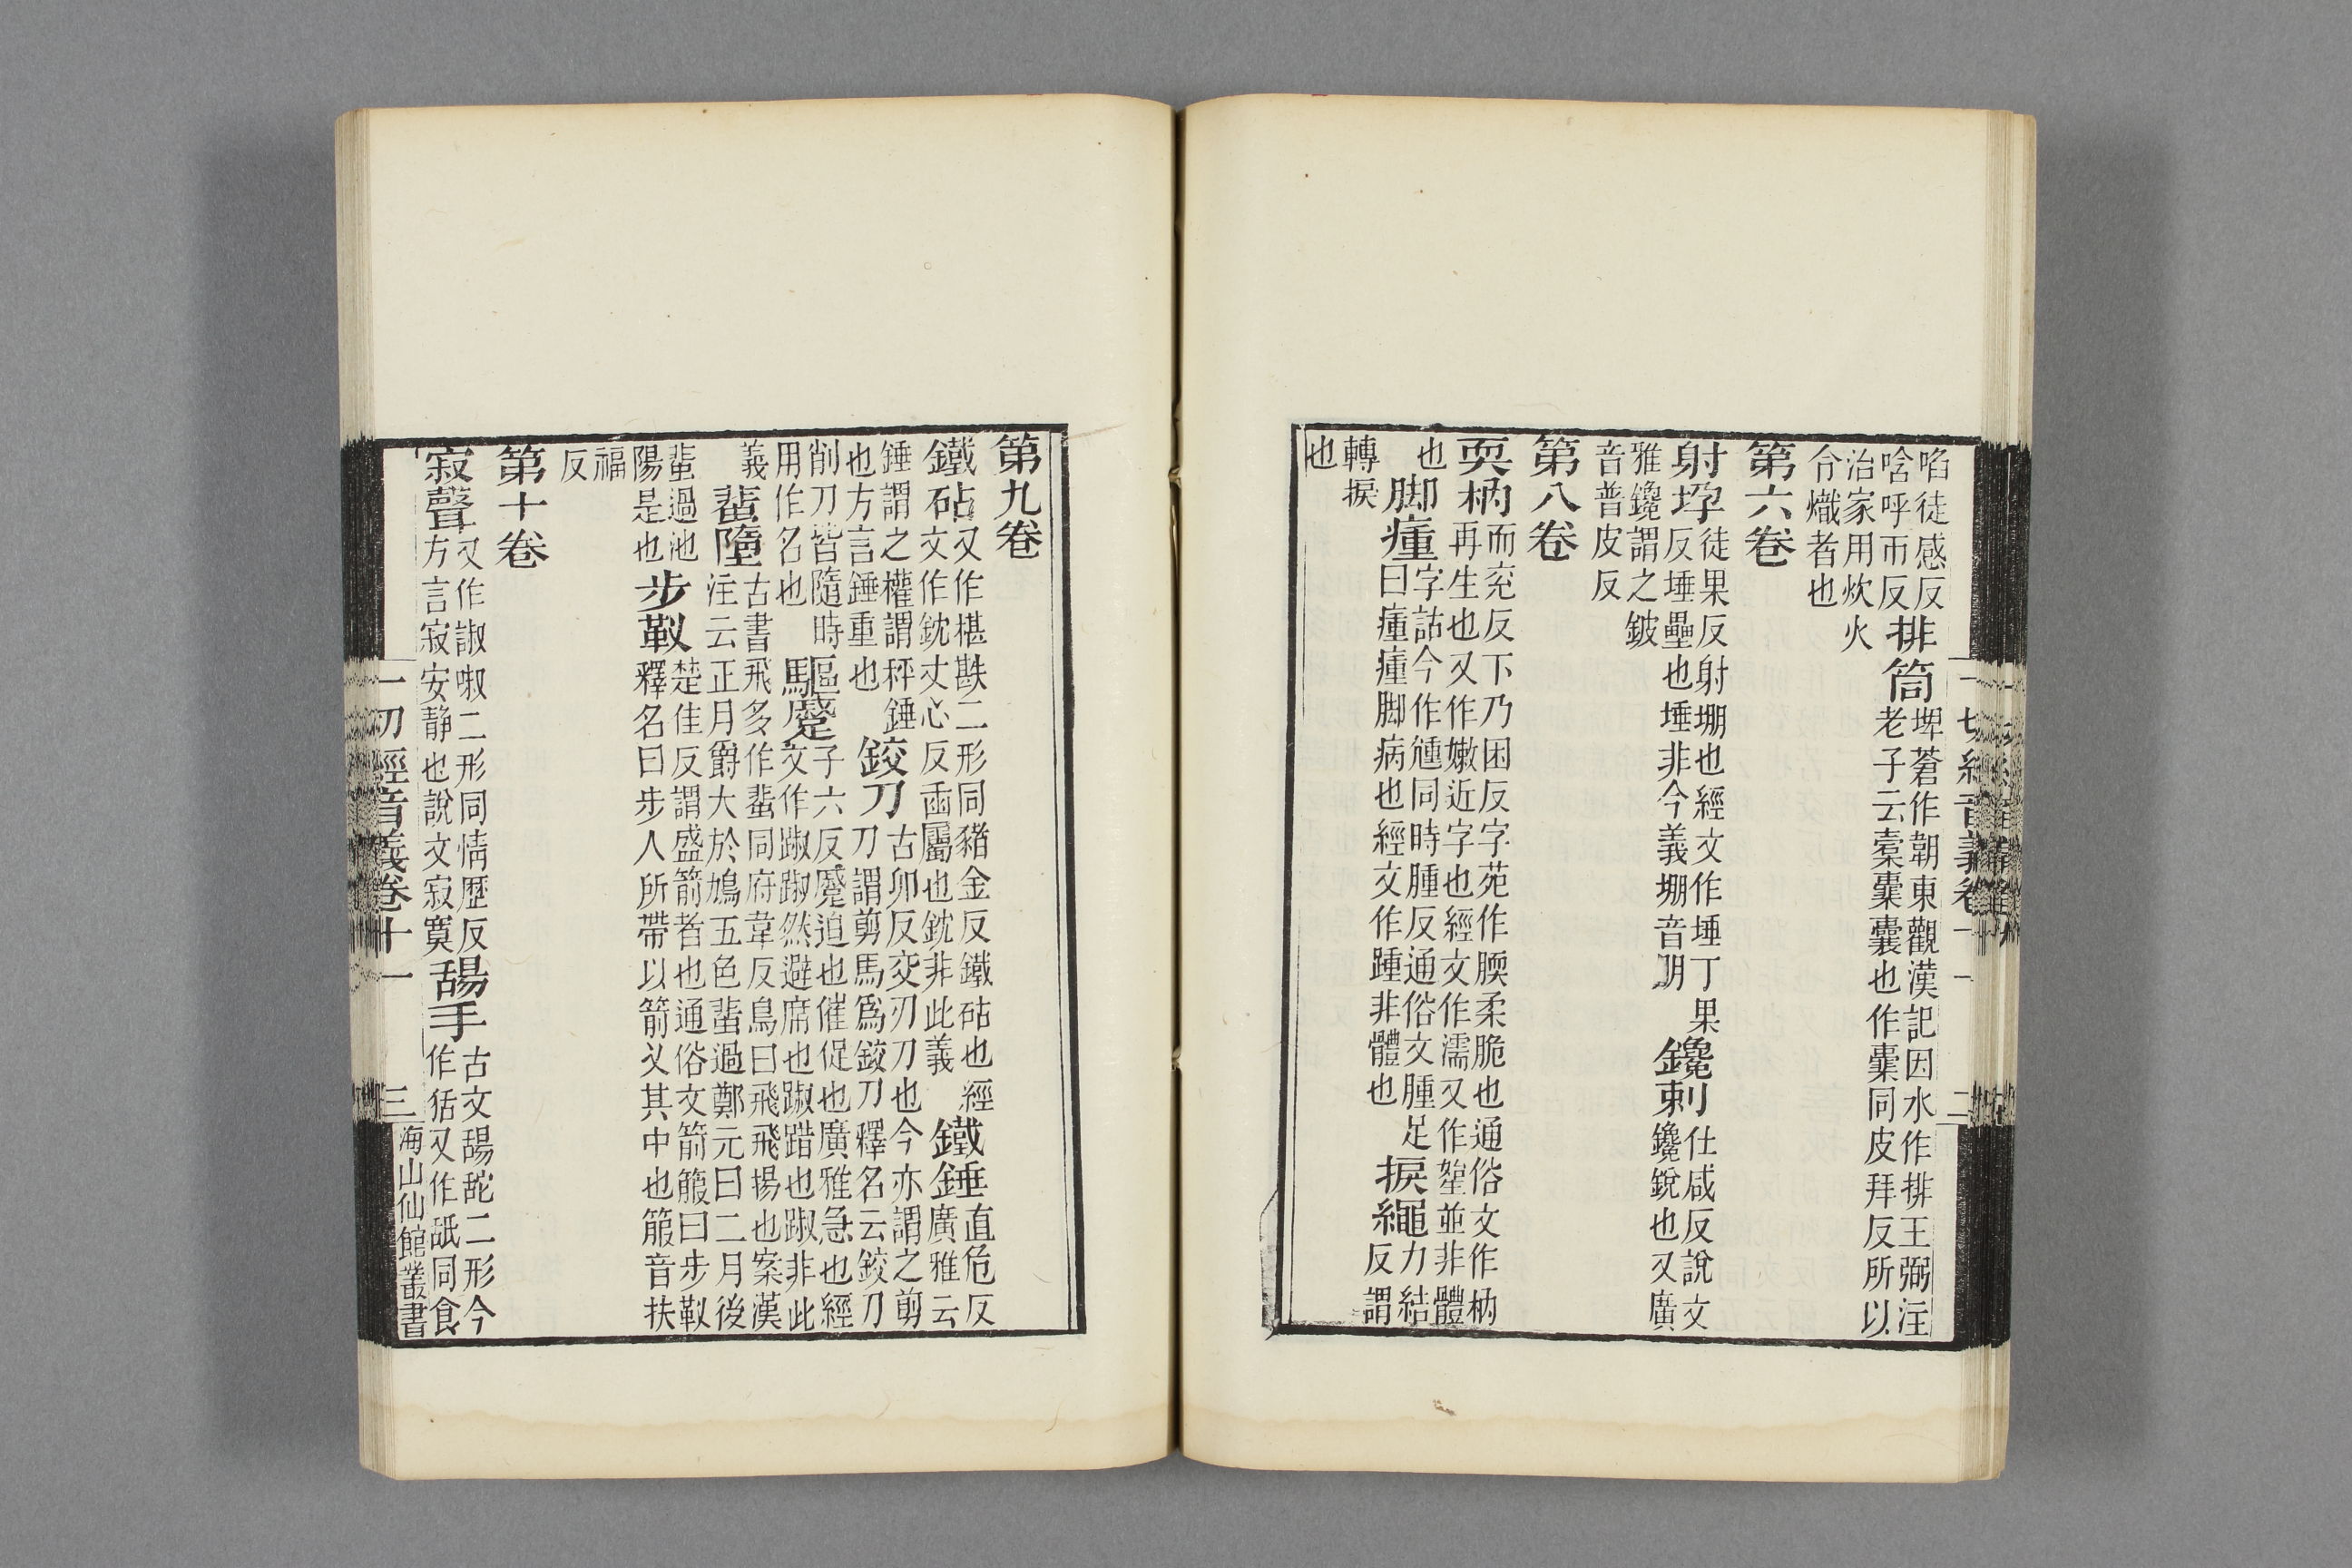 啗徒感反
唅呼而反排筒埤蒼作韛東觀漢記因水作排王弼注
老子云橐橐囊也作橐同皮拜反所以
治家用炊火
令熾者也
第六卷
射垛徒果反射堋也經文作埵丁果
反埵壘也埵非今義堋音朋
鑱刺仕咸反說文
鑱銳也又廣
雅鑱謂之鈹
音普皮反
第八卷
耎枘而兖反下乃困反字苑作腝柔脆也通俗文作枘
再生也又作嫩近字也經文作濡又作㨎並非體
也
脚瘇字詁今作尰同時腫反通俗文腫足
曰瘇瘇脚病也經文作踵非體也
捩繩力結
反謂
轉捩
也
第九卷
鐵砧又作椹㪣二形同豬金反鐵砧也經
文作鈂丈心反臿屬也鈂非此義
鐵錘直危反
廣雅云
錘謂之權謂秤錘
也方言錘重也
鉸刀古卯反交刃刀也今亦謂之剪
刀謂剪馬爲鉸刀釋名云鉸刀
削刀皆隨時
用作名也
驅蹙子六反蹙迫也催促也廣雅急也經
文作踧踧然避席也踧踖也踧非此
義
蜚墮古書飛多作蜚同府韋反鳥曰飛飛揚也案漢
注云正月爵大於鳩五色蜚過鄭元曰二月後
蜚過池
陽是也
步靫楚佳反謂盛箭者也通俗文箭箙曰步靫
釋名曰步人所帶以箭乂其中也箙音扶
福
反
第十卷
寂聲又作諔㖆二形同情歷反
方言寂安靜也說文寂寞
舓手古文舓䑛二形今
作狧又作䑛同食
一切經音義卷十一
三
海山仙館叢書
一切經音義卷十一
二